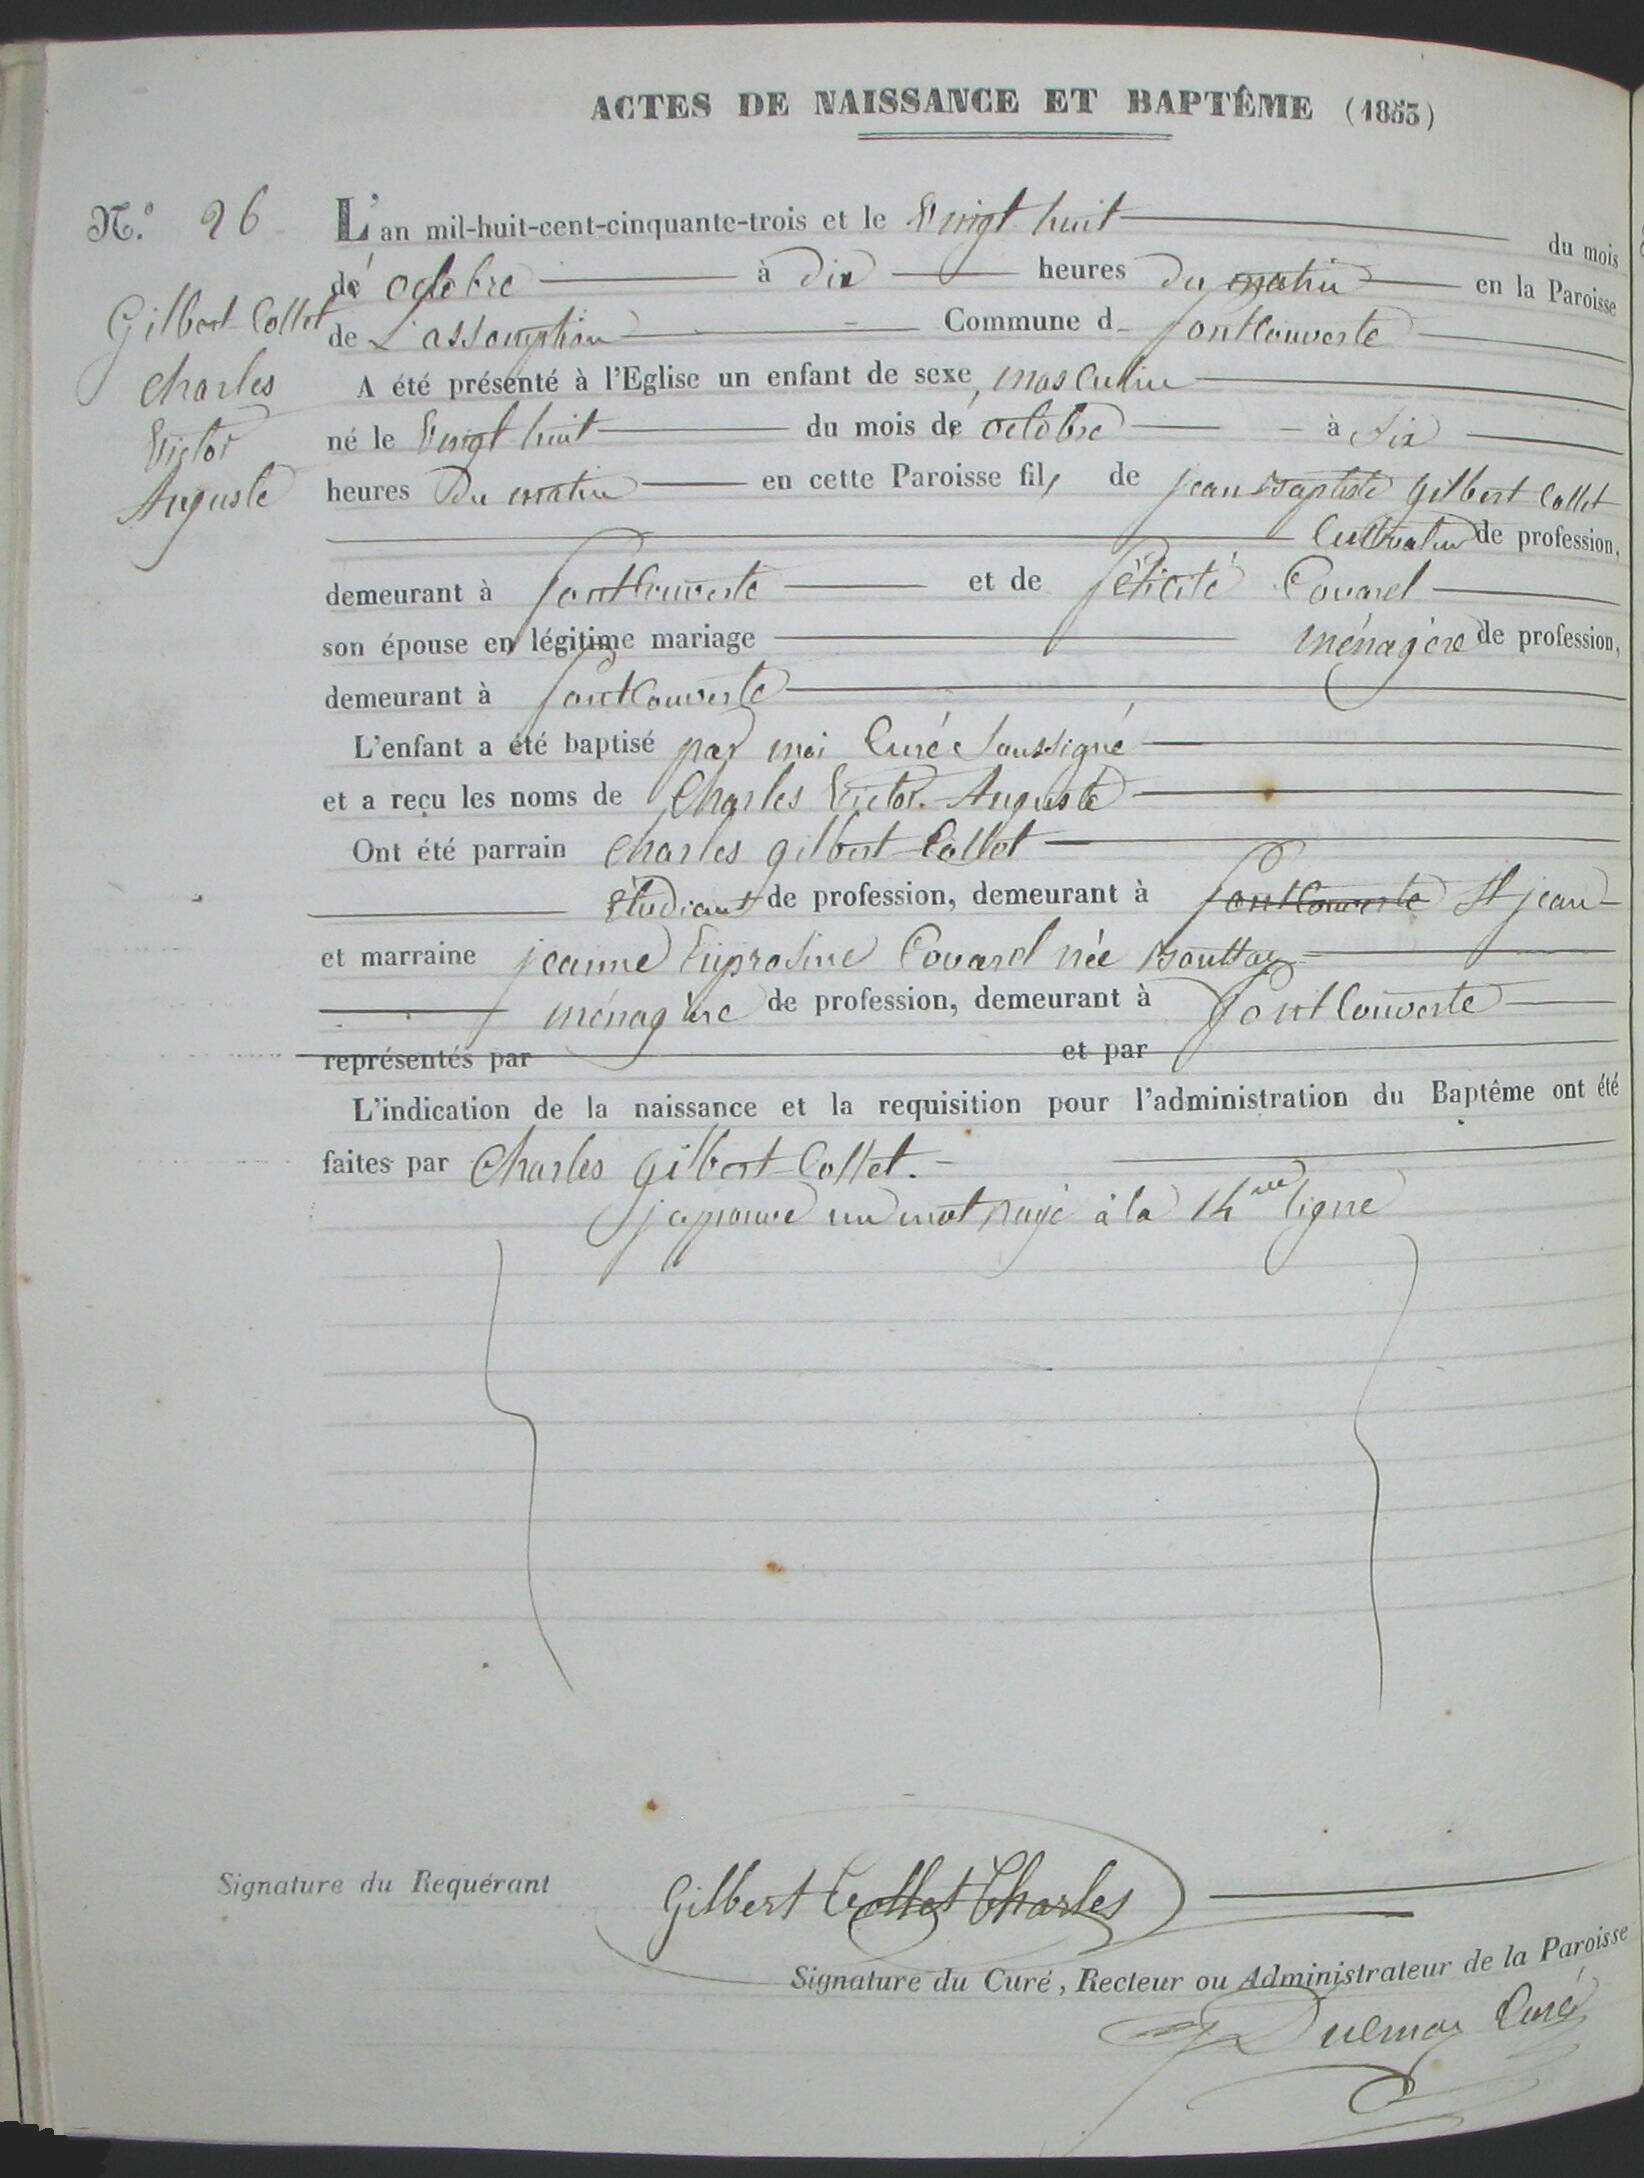 ACTES DE NAISSANCE ET BAPTÊME (1853)
N.º 26
Gilbert-Collet
Charles
Victor
Auguste
L'an mil-huit-cent-cinquante-trois et le Vingt huit du mois
dé octobre à dix heures du matin en la Paroisse
de L'assomption Commune d fontCouverte
A été présenté à l'Eglise un enfant de sexe masculin
né le Vingt huit du mois dé octobre à six
heures du matin en cette Paroisse fils de jean Baptiste Gilbert Collet
Cultivateur de profession,
demeurant à fontCouverte et de félicité Covarel
son épouse en légitime mariage ménagère de profession,
demeurant à fontCouverte
L'enfant a été baptisé par moi Curé Soussigné
et a reçu les noms de Charles Victor Auguste
Ont été parrain Charles gilbert-Collet
étudiant de profession, demeurant à fontCouverte St jean
et marraine jeanne Euprosine Covarel née
ménagère de profession, demeurant à fontCouverte
représentés par et par
L'indication de la naissance et la requisition pour l'administration du Baptême ont été
faites par Charles Gilbert-Collet.
j'aprouve un mot rayé à la 14me ligne
Signature du Requérant
Gilbert Collet Charles
Signature du Curé, Recteur ou Administrateur de la Paroisse
Curé